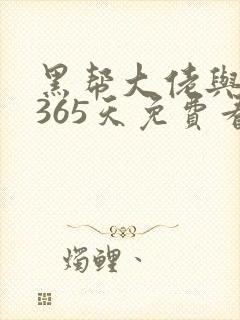 黑帮大佬與
365天免費看
燭鯉、